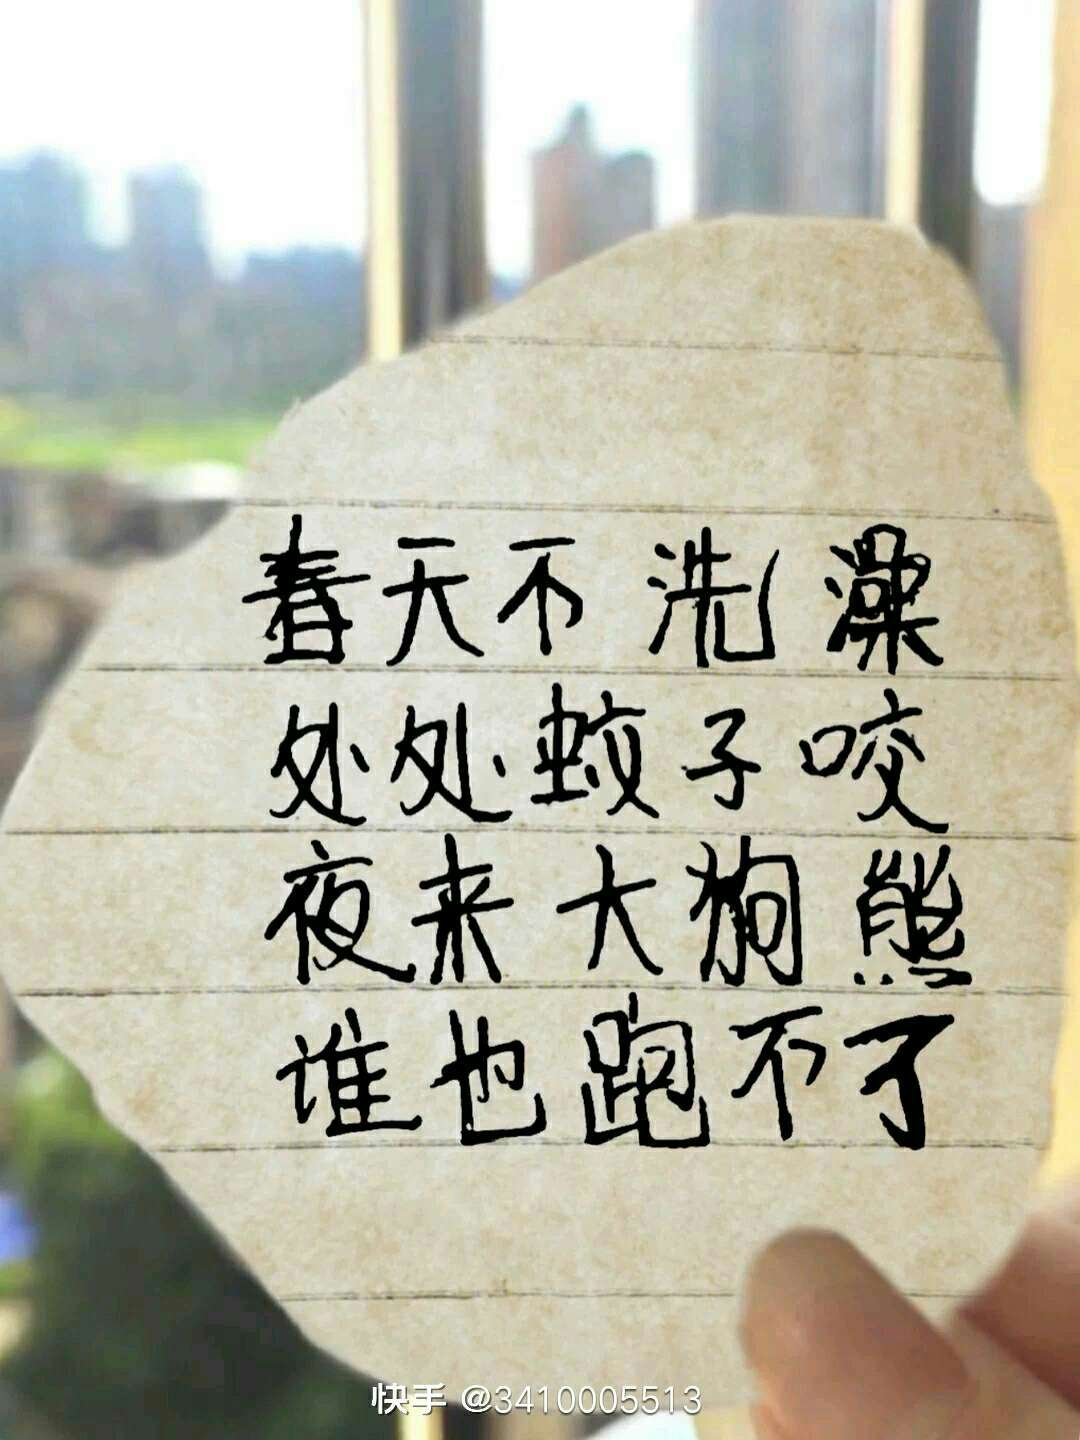 春天不洗澡
处处蚊子咬
夜来大狗熊
谁也跑不了
快手 @3410005513